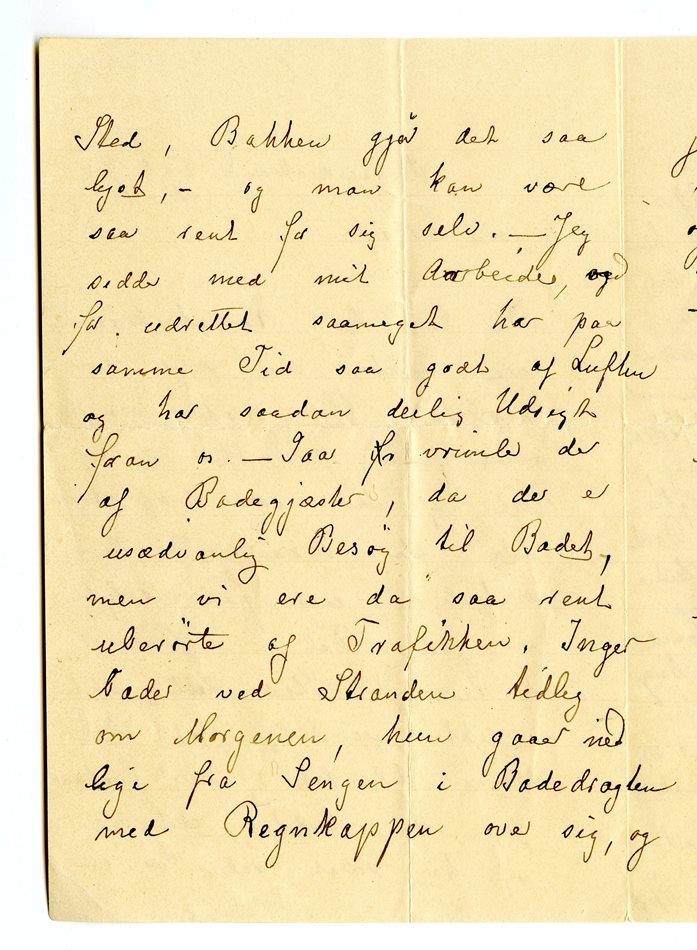 Sted, Bakken gjør det saa
lyst, - og man kan være
saa rent for sig selv. — Jeg
sidder med mit Aarbeide, og
før udrettet saameget har paa
samme Tid saa godt af Luften
og har saadan deilig Udsigt
foran os. — Saa vrimler der
af Badegjæster, da der er
usædvanlig Besøg til Badet,
men vi ere da saa rent
uberörte af Trafikken. Inger
bader ved Stranden tidlig
om Morgenen, hun gaar ned
lige fra Sengen i Badedragten
med Regnkappen over sig, og